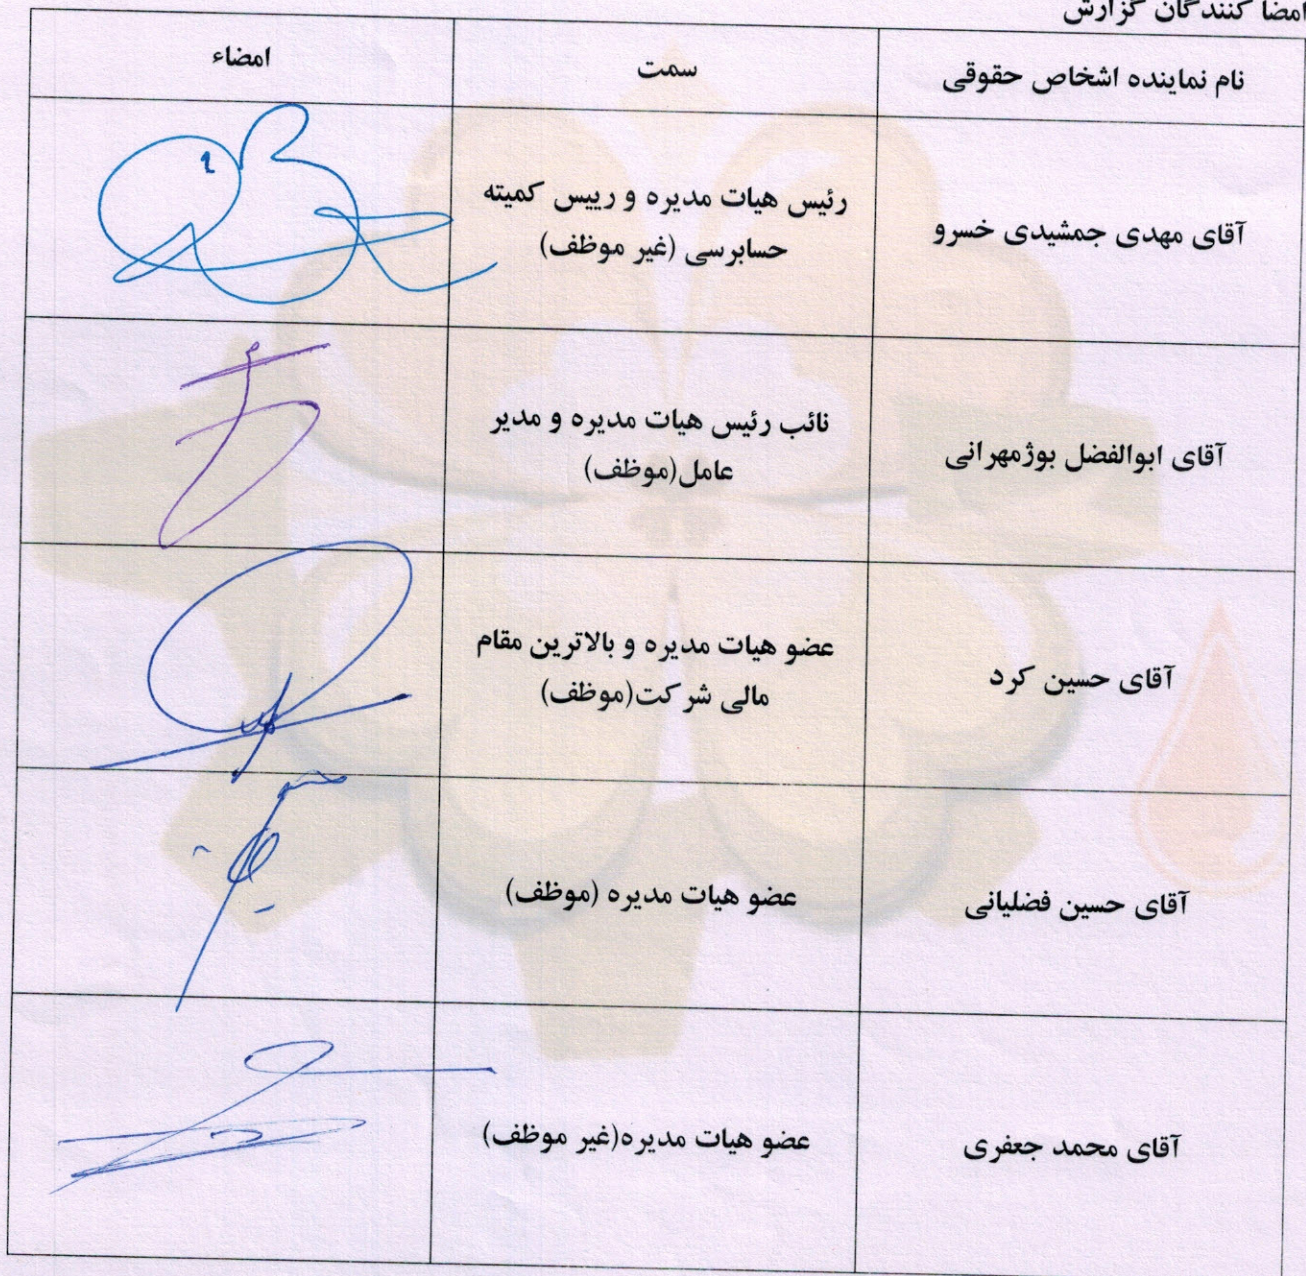 امضا کنندگان گزارش
نام نماینده اشخاص حقوقی سمت امضاء
آقای مهدی جمشیدی خسرو
رئیس هیات مدیره و رییس کمیته
حسابرسی (غیر موظف)
آقای ابوالفضل بوژمهرانی
نائب رئیس هیات مدیره و مدیر
عامل(موظف)
آقای حسین کرد
عضو هیات مدیره و بالاترین مقام
مالی شرکت(موظف)
آقای حسین فضلیانی
عضو هیات مدیره (موظف)
آقای محمد جعفری
عضو هیات مدیره(غیر موظف)